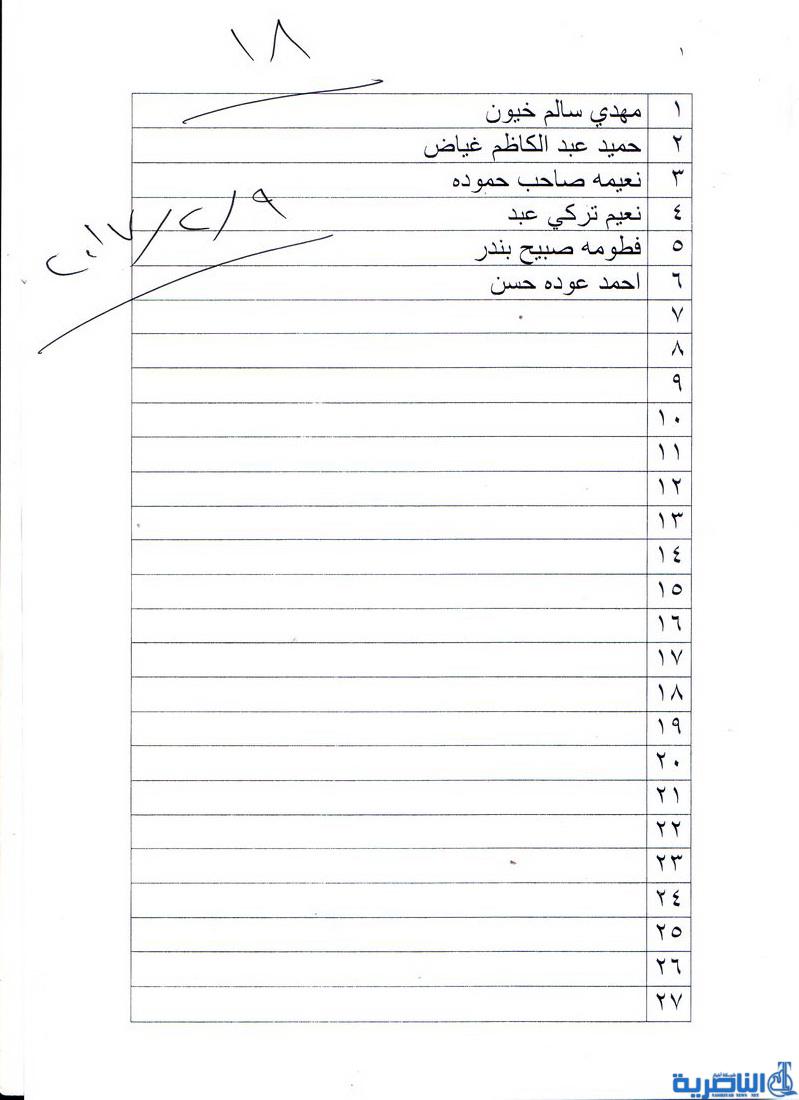 ١٨
١
١ مهدي سالم خيون
٢ حميد عبد الكاظم غياض
٣ نعيمه صاحب حموده
٤ نعيم تركي عبد
٥ فطومه صبيح بندر
٦ احمد عوده حسن
٢٠١٧/٢/٩
٧
٨
٩
١٠
١١
١٢
١٣
١٤
١٥
١٦
١٧
١٨
١٩
٢٠
٢١
٢٢
٢٣
٢٤
٢٥
٢٦
٢٧
شبكة أخبار
الناصرية
NASIRIYAH NEWS NET